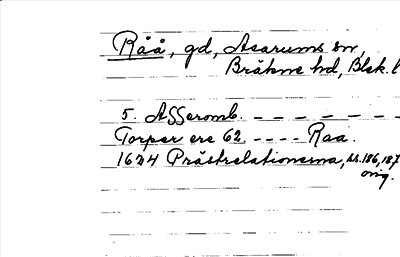 Råå, gd, Asarums sn,
Bräkne hd, Blek. l
5. Asseromb. - - - - - -
Torper ere 62. - - - - Raa.
1624 Prästrelationerna, bl. 186, 187
orig.